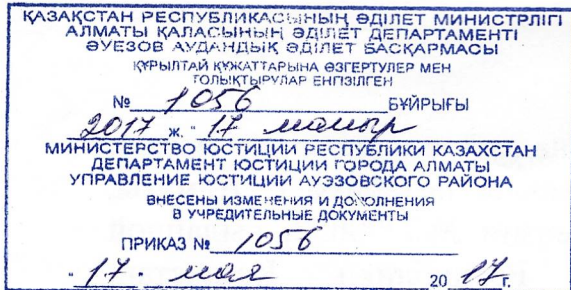 ҚАЗАҚСТАН РЕСПУБЛИКАСЫНЫҢ ӘДІЛЕТ МИНИСТРЛІГІ
АЛМАТЫ ҚАЛАСЫНЫҢ ӘДІЛЕТ ДЕПАРТАМЕНТІ
ӘУЕЗОВ АУДАНДЫҚ ӘДІЛЕТ БАСҚАРМАСЫ
ҚҰРЫЛТАЙ ҚҰЖАТТАРЫНА ӨЗГЕРТУЛЕР МЕН
ТОЛЫҚТЫРУЛАР ЕНГІЗІЛГЕН
№ 1056 БҰЙРЫҒЫ
2017 ж. "17 мамыр
МИНИСТЕРСТВО ЮСТИЦИИ РЕСПУБЛИКИ КАЗАХСТАН
ДЕПАРТАМЕНТ ЮСТИЦИИ ГОРОДА АЛМАТЫ
УПРАВЛЕНИЕ ЮСТИЦИИ АУЭЗОВСКОГО РАЙОНА
ВНЕСЕНЫ ИЗМЕНЕНИЯ И ДОПОЛНЕНИЯ
В УЧРЕДИТЕЛЬНЫЕ ДОКУМЕНТЫ
ПРИКАЗ № 1056
"17" мая 2017 г.